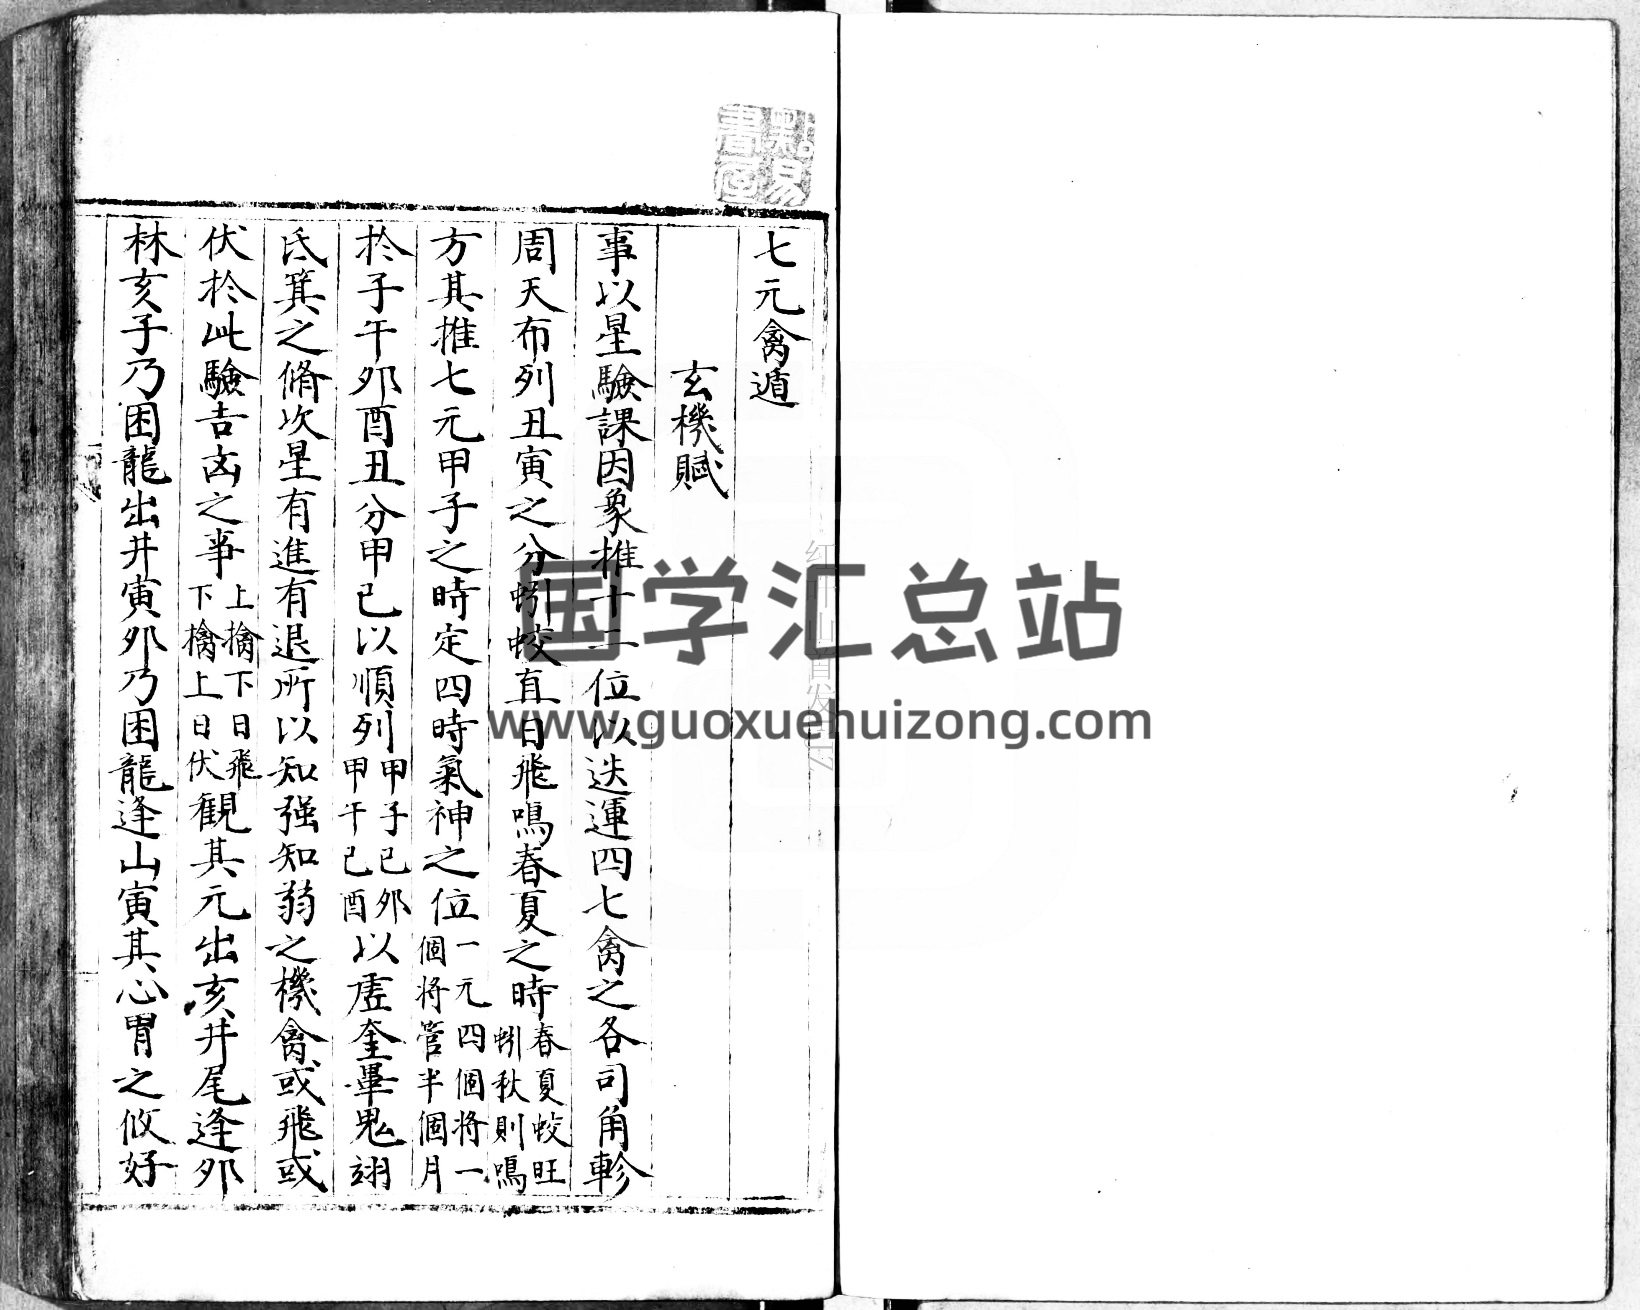 七元禽遁
玄機賦
事以星驗課因象推十二位以迭運四七禽之各司角軫
周天布列丑寅之分蚓蛟直日飛鳴春夏之時春夏蛟旺蚓秋則鳴
方其推七元甲子之時定四時氣神之位一元四個將一個將管半個月
於子午夘酉丑分甲己以順列甲子己夘甲午己酉以虛奎畢鬼翊
氐箕之脩次星有進有退所以知强知弱之機禽或飛或
伏於此驗吉凶之事上擒下日飛下擒上日伏觀其元出亥井尾逢夘
林亥子乃困龍出井寅夘乃困龍逢山寅其心胃之攸好
點易書屋
国学汇总站
www.guoxuehuizong.com